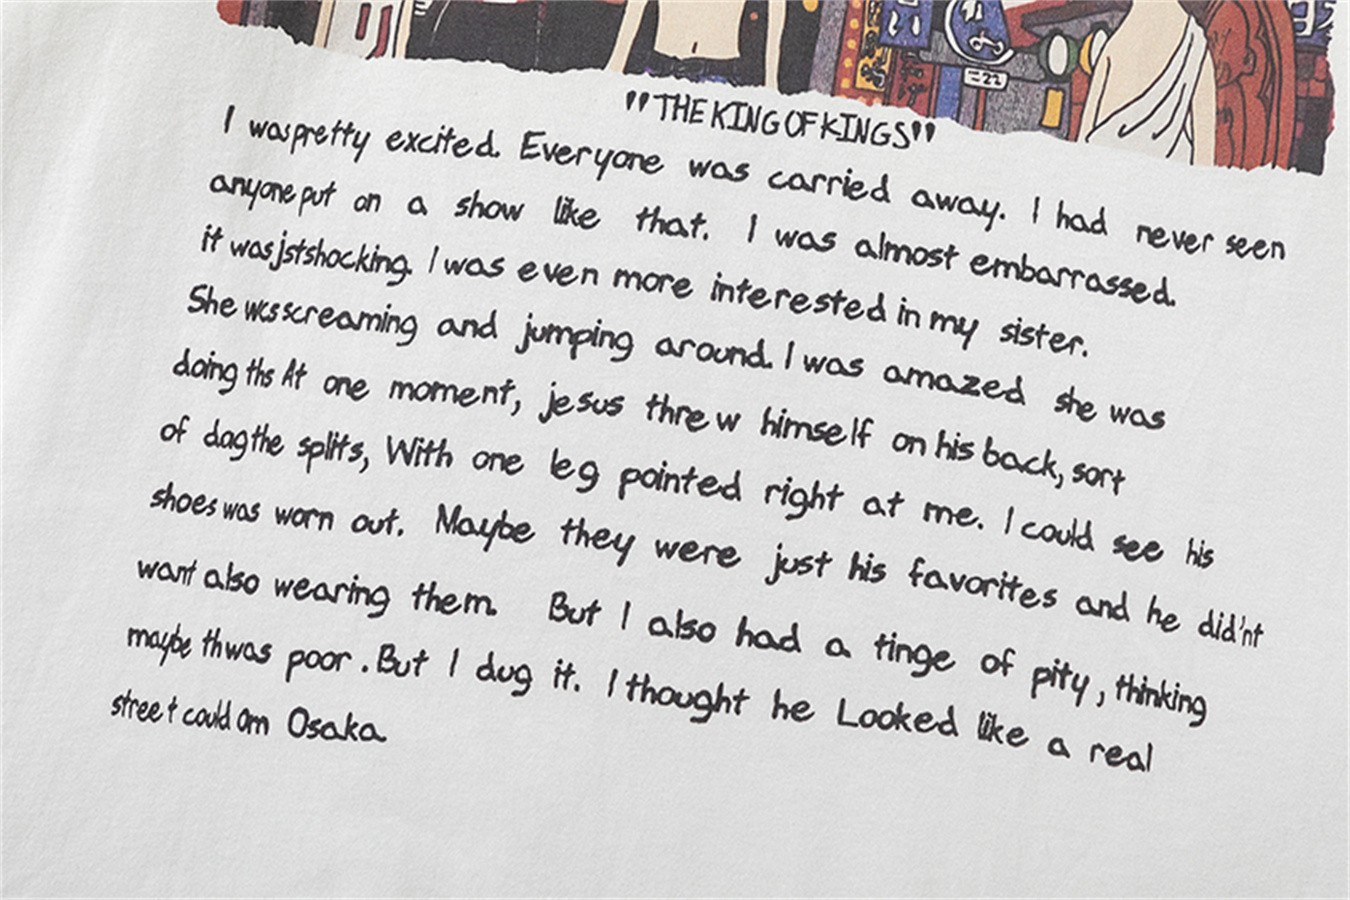 "THE KING OF KINGS"
I was pretty excited. Everyone was carried away. I had never seen
anyone put on a show like that. I was almost embarrassed.
it was jstshocking. I was even more interested in my sister.
She was screaming and jumping around. I was amazed she was
doing ths At one moment, jesus threw himself on his back, sort
of dagthe splits, With one leg pointed right at me. I could see his
shoes was worn out. Maybe they were just his favorites and he did'nt
want also wearing them. But I also had a tinge of pity, thinking
maybe thwas poor. But I dug it. I thought he Looked like a real
street could om Osaka
22